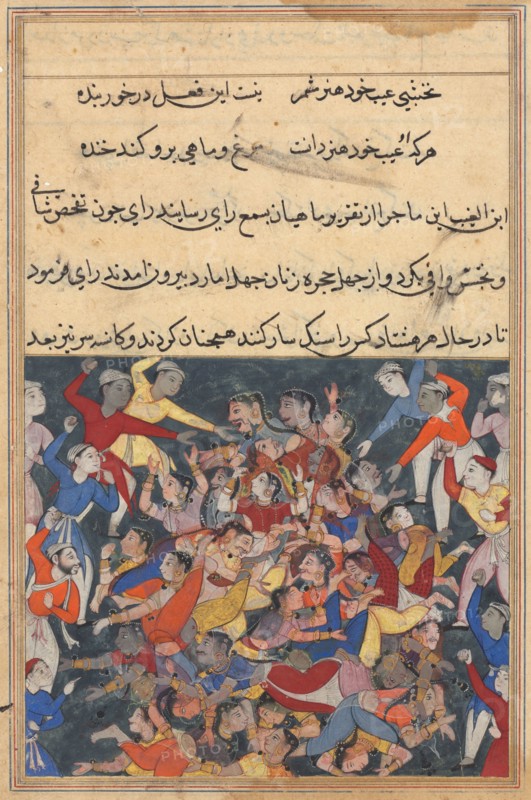 نخشبی عیب خود هنر شمر نیست این فعل در خور بنده
هر که او عیب خود هنر دانست مرغ و ماهی برو کند خنده
ابن الغیب این ماجرا از تقریر ماهیان بسمع رای رسانید رای چون تفحص شافی
و تجسس وافی بکرد و از چهل حجره زنان چهل امارد بیرون آمدند رای فرمود
تا در حال هر هشتاد کس را سنک سار کنند همچنان کردند و کاسه سر نیز بعد
PHOTO